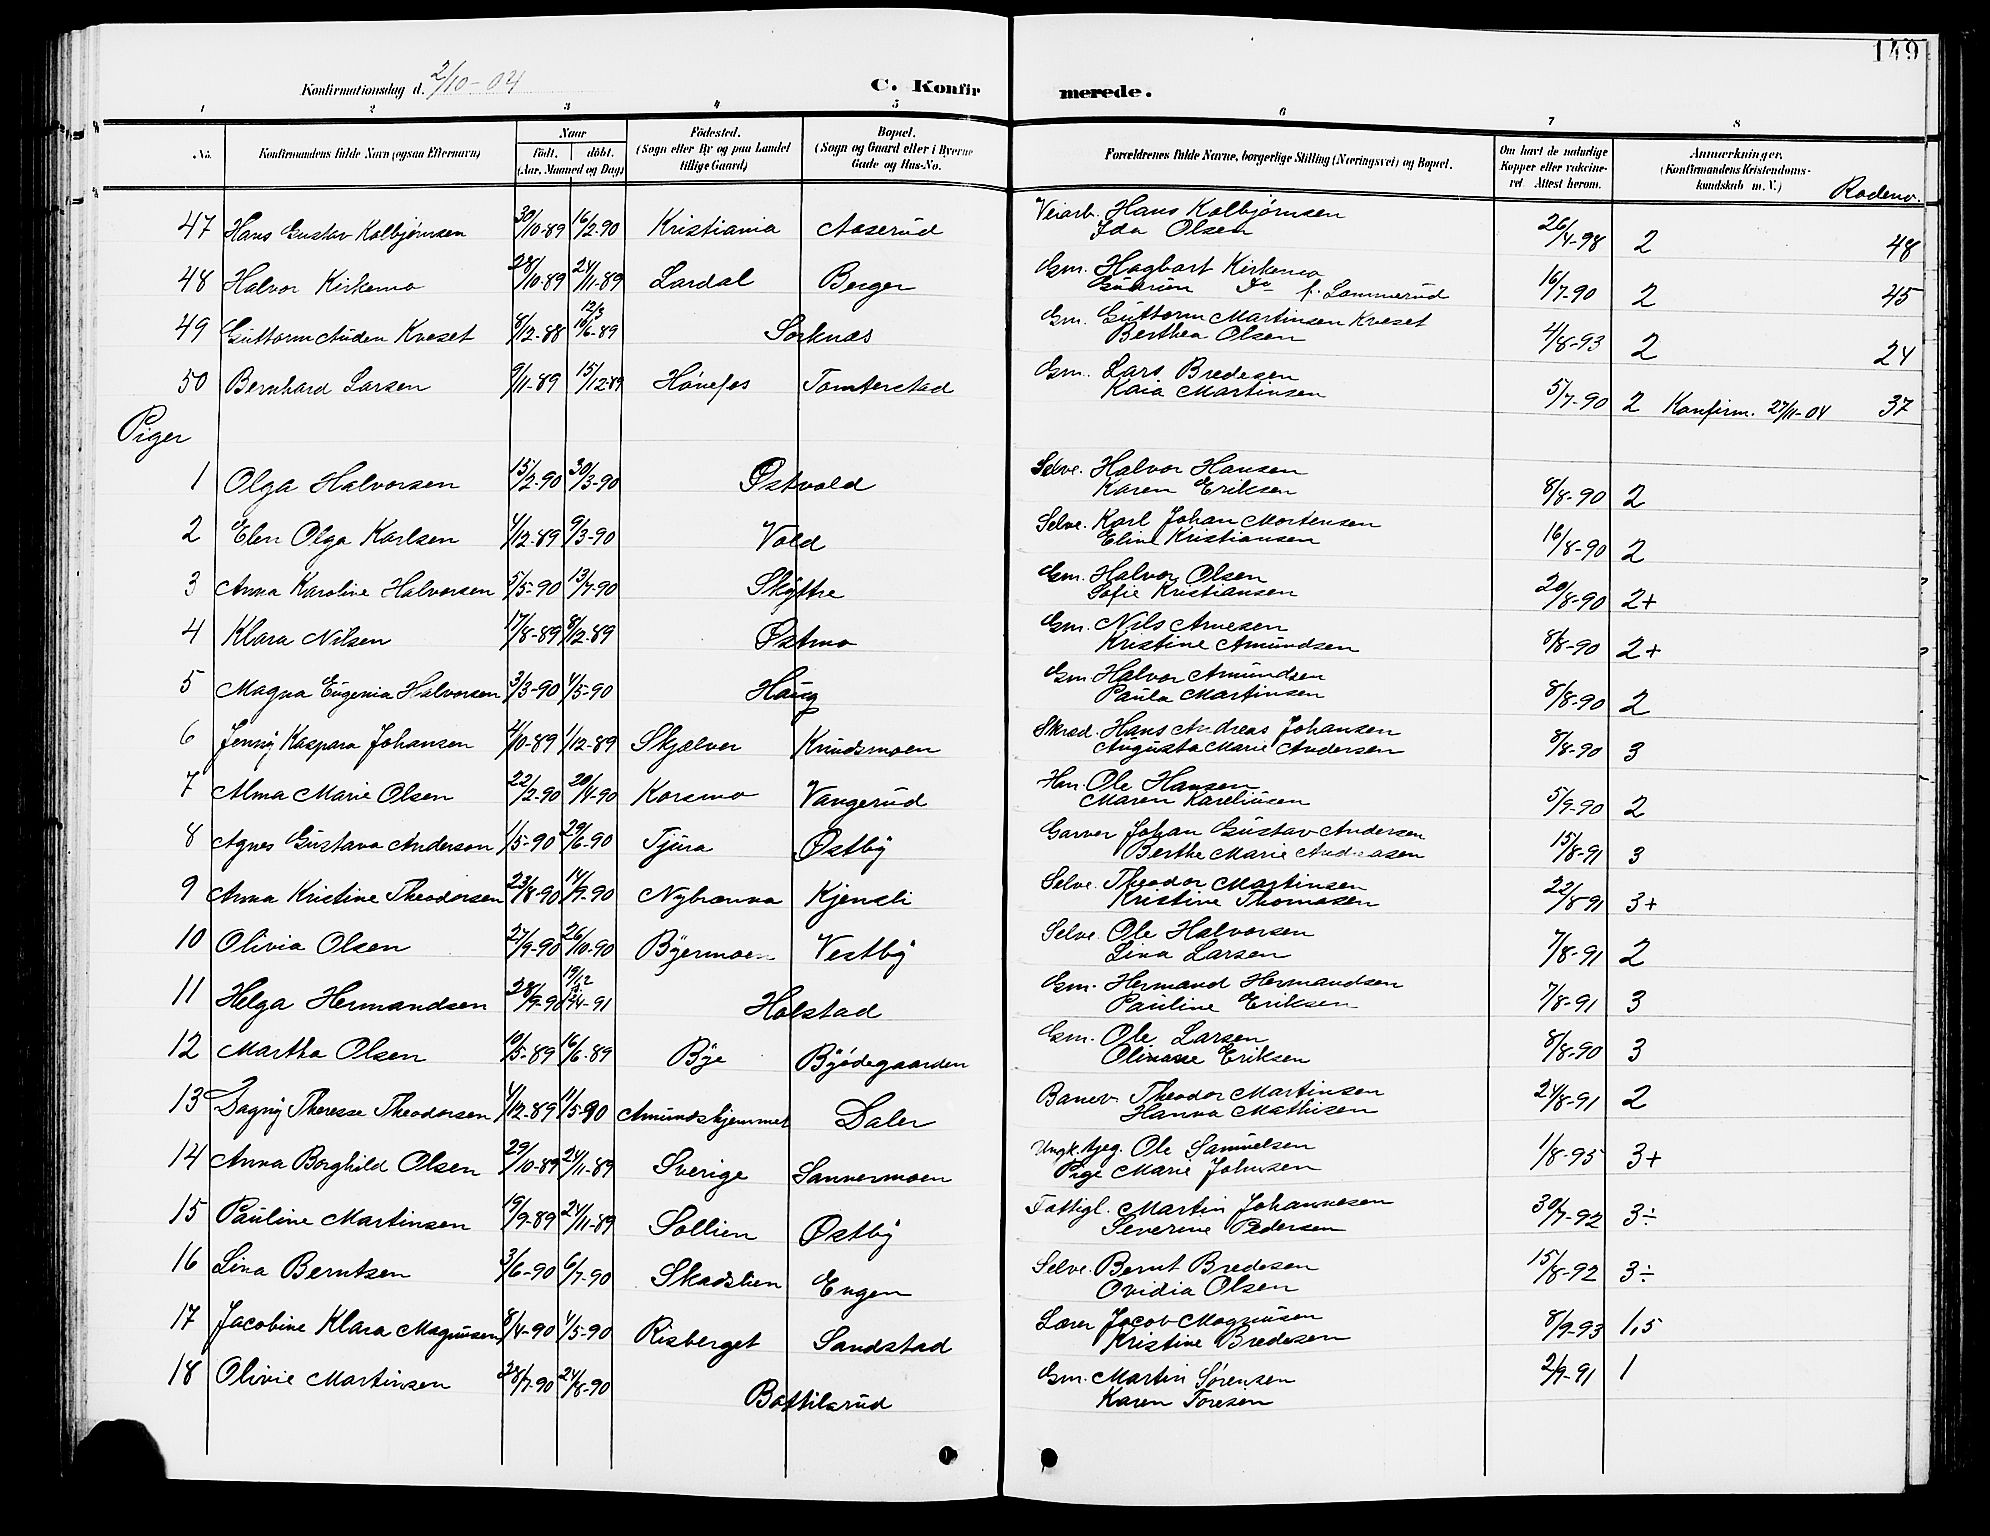 149
Konfirmationsdag d. 2/10-04 C. Konfirmerede.
1 2 3 4 5 6 7 8
No. Konfirmandens fulde Navn (ogsaa Efternavn) Naar födt. döbt. (Aar, Maaned og Dag) Födested. (Sogn eller By og paa Landet tillige Gaard) Bopæl. (Sogn og Gaard eller i Byerne Gade og Hus-No. Forældrenes fulde Navne, borgerlige Stilling (Næringsvei) og Bopæl. Om havt de naturlige Kopper eller vakcineret. Attest herom. Anmærkninger. (Konfirmandens Kristendomskundskab m. V.) Rodenr.
47 Hans Gustav Kolbjørnsen 30/10-89 16/2-90 Kristiania Aaserud Veiarb. Hans Kolbjørnsen 26/4-98 2 48
Ida Olsen
48 Halvor Kirkemo 28/10-89 24/11-89 Lardal Berger Gm. Hagbart Kirkemo 16/7-90 2 45
Gudrun Do f. Lommerud
49 Guttorm Auden Kveset 8/12-88 12/3 10/6-89 Sorknæs Gm. Guttorm Martinsen Kveset 4/8-93 2 24
Berthea Olsen
50 Bernhard Larsen 9/11-89 15/12-89 Hønefos Tomterstad Gm. Lars Bredesen 5/7-90 2 Konfirm. 27/11-04 37
Kaia Martinsen
Piger
1 Olga Halvorsen 15/2-90 30/3-90 Østvold Selve. Halvor Hansen 8/8-90 2
Karen Eriksen
2 Elen Olga Karlsen 4/12-89 9/3-90 Vold Selve. Karl Johan Mortensen 16/8-90 2
Eline Kristiansen
3 Anna Karoline Halvorsen 5/5-90 13/7-90 Skyttre Gm. Halvor Olsen 20/8-90 2+
Sofie Kristiansen
4 Klara Nilsen 17/8-89 8/12-89 Østmo Gm. Nils Arnesen 8/8-90 2+
Kristine Amundsen
5 Magna Eugenia Halvorsen 3/3-90 4/5-90 Haug Gm Halvor Amundsen 8/8-90 2
Paula Martinsen
6 Jenny Kaspara Johansen 4/10-89 1/12-89 Skjælver Knudsmoen Skræd. Hans Andreas Johansen 8/8-90 3
Augusta Marie Andersen
7 Alma Marie Olsen 22/2-90 20/4-90 Korsmo Vangerud Hm. Ole Hansen 5/9-90 2
Maren Kareliusen
8 Agnes Gustava Anderson 1/5-90 29/6-90 Tjura Østby Garver Johan Gustav Andersen 15/8-91 3
Berthe Marie Andreasen
9 Anna Kristine Theodorsen 23/8-90 14/9-90 Nybrænna Kjensli Selve. Theodor Martinsen 22/8 91 3+
Kristine Thomasen
10 Olivia Olsen 27/9-90 26/10-90 Byermoen Vestby Selve. Ole Halvorsen 7/8-91 2
Lina Larsen
11 Helga Hermandsen 28/9-90 19/12 12/4-91 Holstad Gm. Hermand Hermandsen 7/8-91 3
Pauline Eriksen
12 Martha Olsen 10/5-89 16/6-89 Bye Byødegaarden Gm. Ole Larsen 8/8-90 3
Olinane Eriksen
13 Dagny Therese Theodorsen 4/12-89 11/5-90 Amundshjemmet Daler Banev. Theodor Martinsen 24/8-91 2
Hanna Mathisen
14 Anna Borghild Olsen 29/10-89 24/11-89 Sverige Sannermoen Ungk. Ole Samuelsen 1/8-95 3+
Pige Marie Johnsen
15 Pauline Martinsen 19/9-89 24/11-89 Sollien Østby Fattigl. Martin Johannesen 30/7-92 3÷
Severine Pedersen
16 Lina Berntsen 3/6-90 6/7-90 Skaslien Engen Selve. Bernt Bredesen 15/8-92 3÷
Ovidia Olsen
17 Jacobine Klara Magnusen 8/4-90 4/5-90 Risberget Sandstad Lærer Jacob Magnusen 8/9-93 1,5
Kristine Bredesen
18 Olivie Martinsen 28/7-90 24/8-90 Bottilsrud Gm. Martin Sørensen 2/9-91 1
Karen Toresen